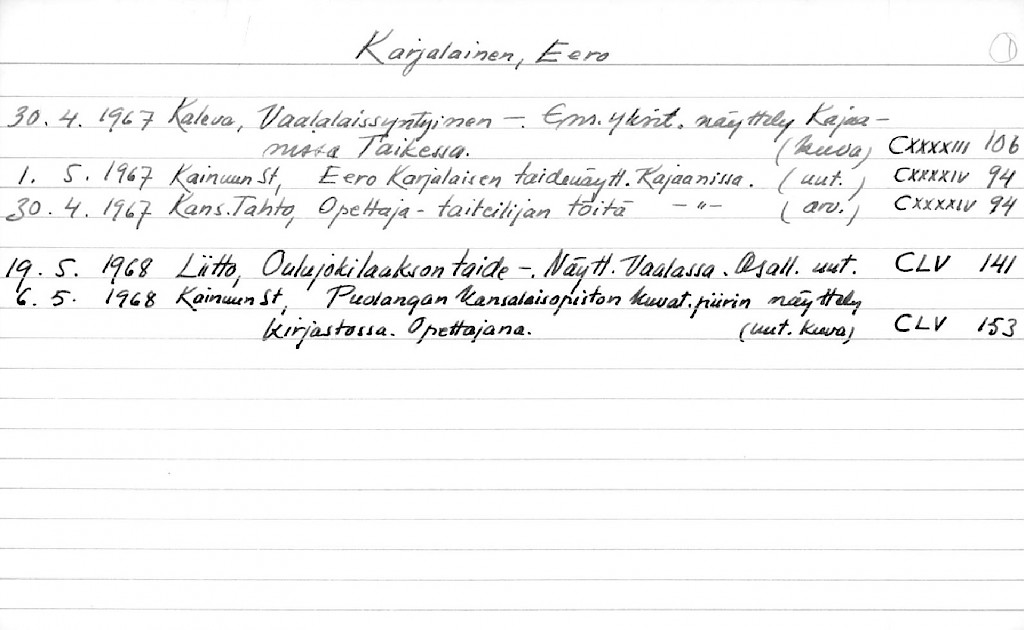 Karjalainen, Eero 1
30. 4. 1967 Kaleva, Vaalalaissyntyinen -. Ens. yksit. näyttely Kajaa-
nissa Taikessa. (kuva) CXXXXIII 106
1. 5. 1967 Kainuun St, Eero Karjalaisen taidenäytt. Kajaanissa. (uut.) CXXXXIV 94
30. 4. 1967 Kans. Tahto, Opettaja-taiteilijan töitä -"- (arv.) CXXXXIV 94
19. 5. 1968 Liitto, Oulujokilaakson taide -. Näytt. Vaalassa. Osall. uut. CLV 141
6. 5. 1968 Kainuun St, Puolangan Kansalaisopiston kuvat.piirin näyttely
kirjastossa. Opettajana. (uut. kuva) CLV 153